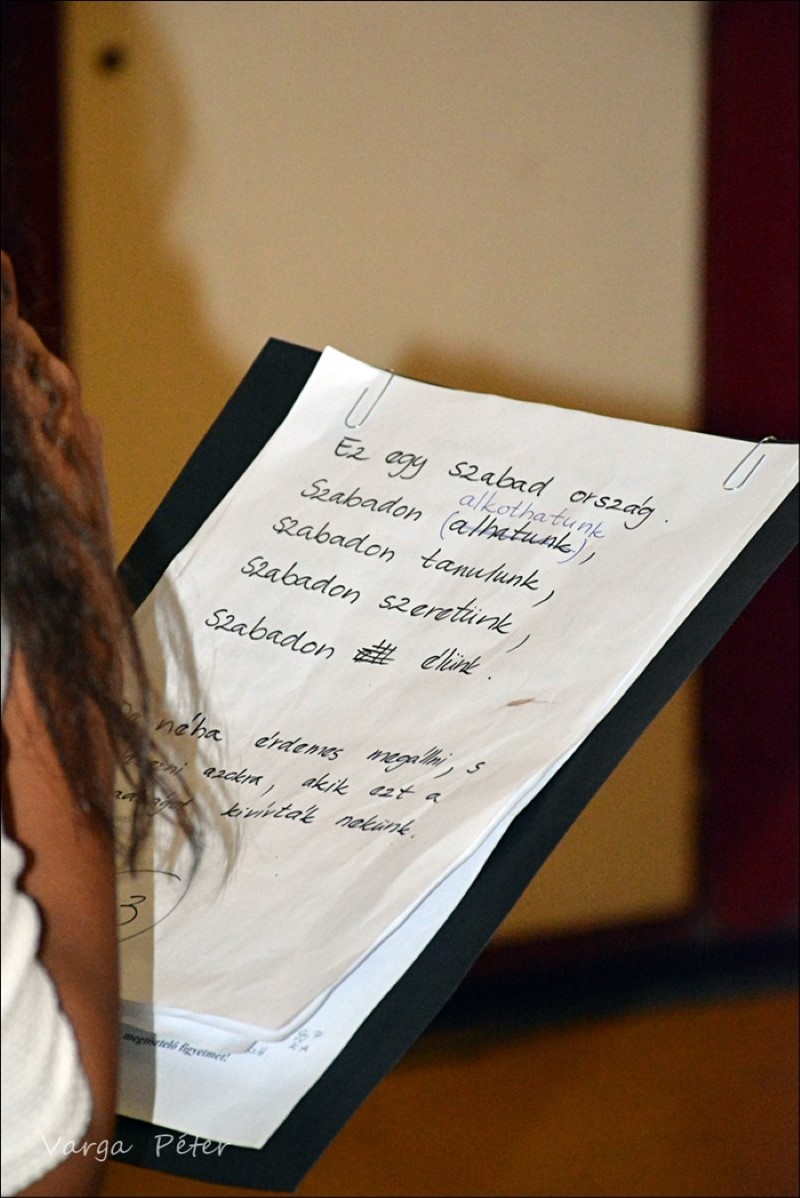 Ez egy szabad ország.
alkothatunk
Szabadon (alhatunk),
szabadon tanulunk,
szabadon szeretünk,
szabadon élünk.
néha érdemes megállni, s
azokra, akik ezt a
kivívták nekünk.
3
megtisztelő figyelmet!
Varga Péter